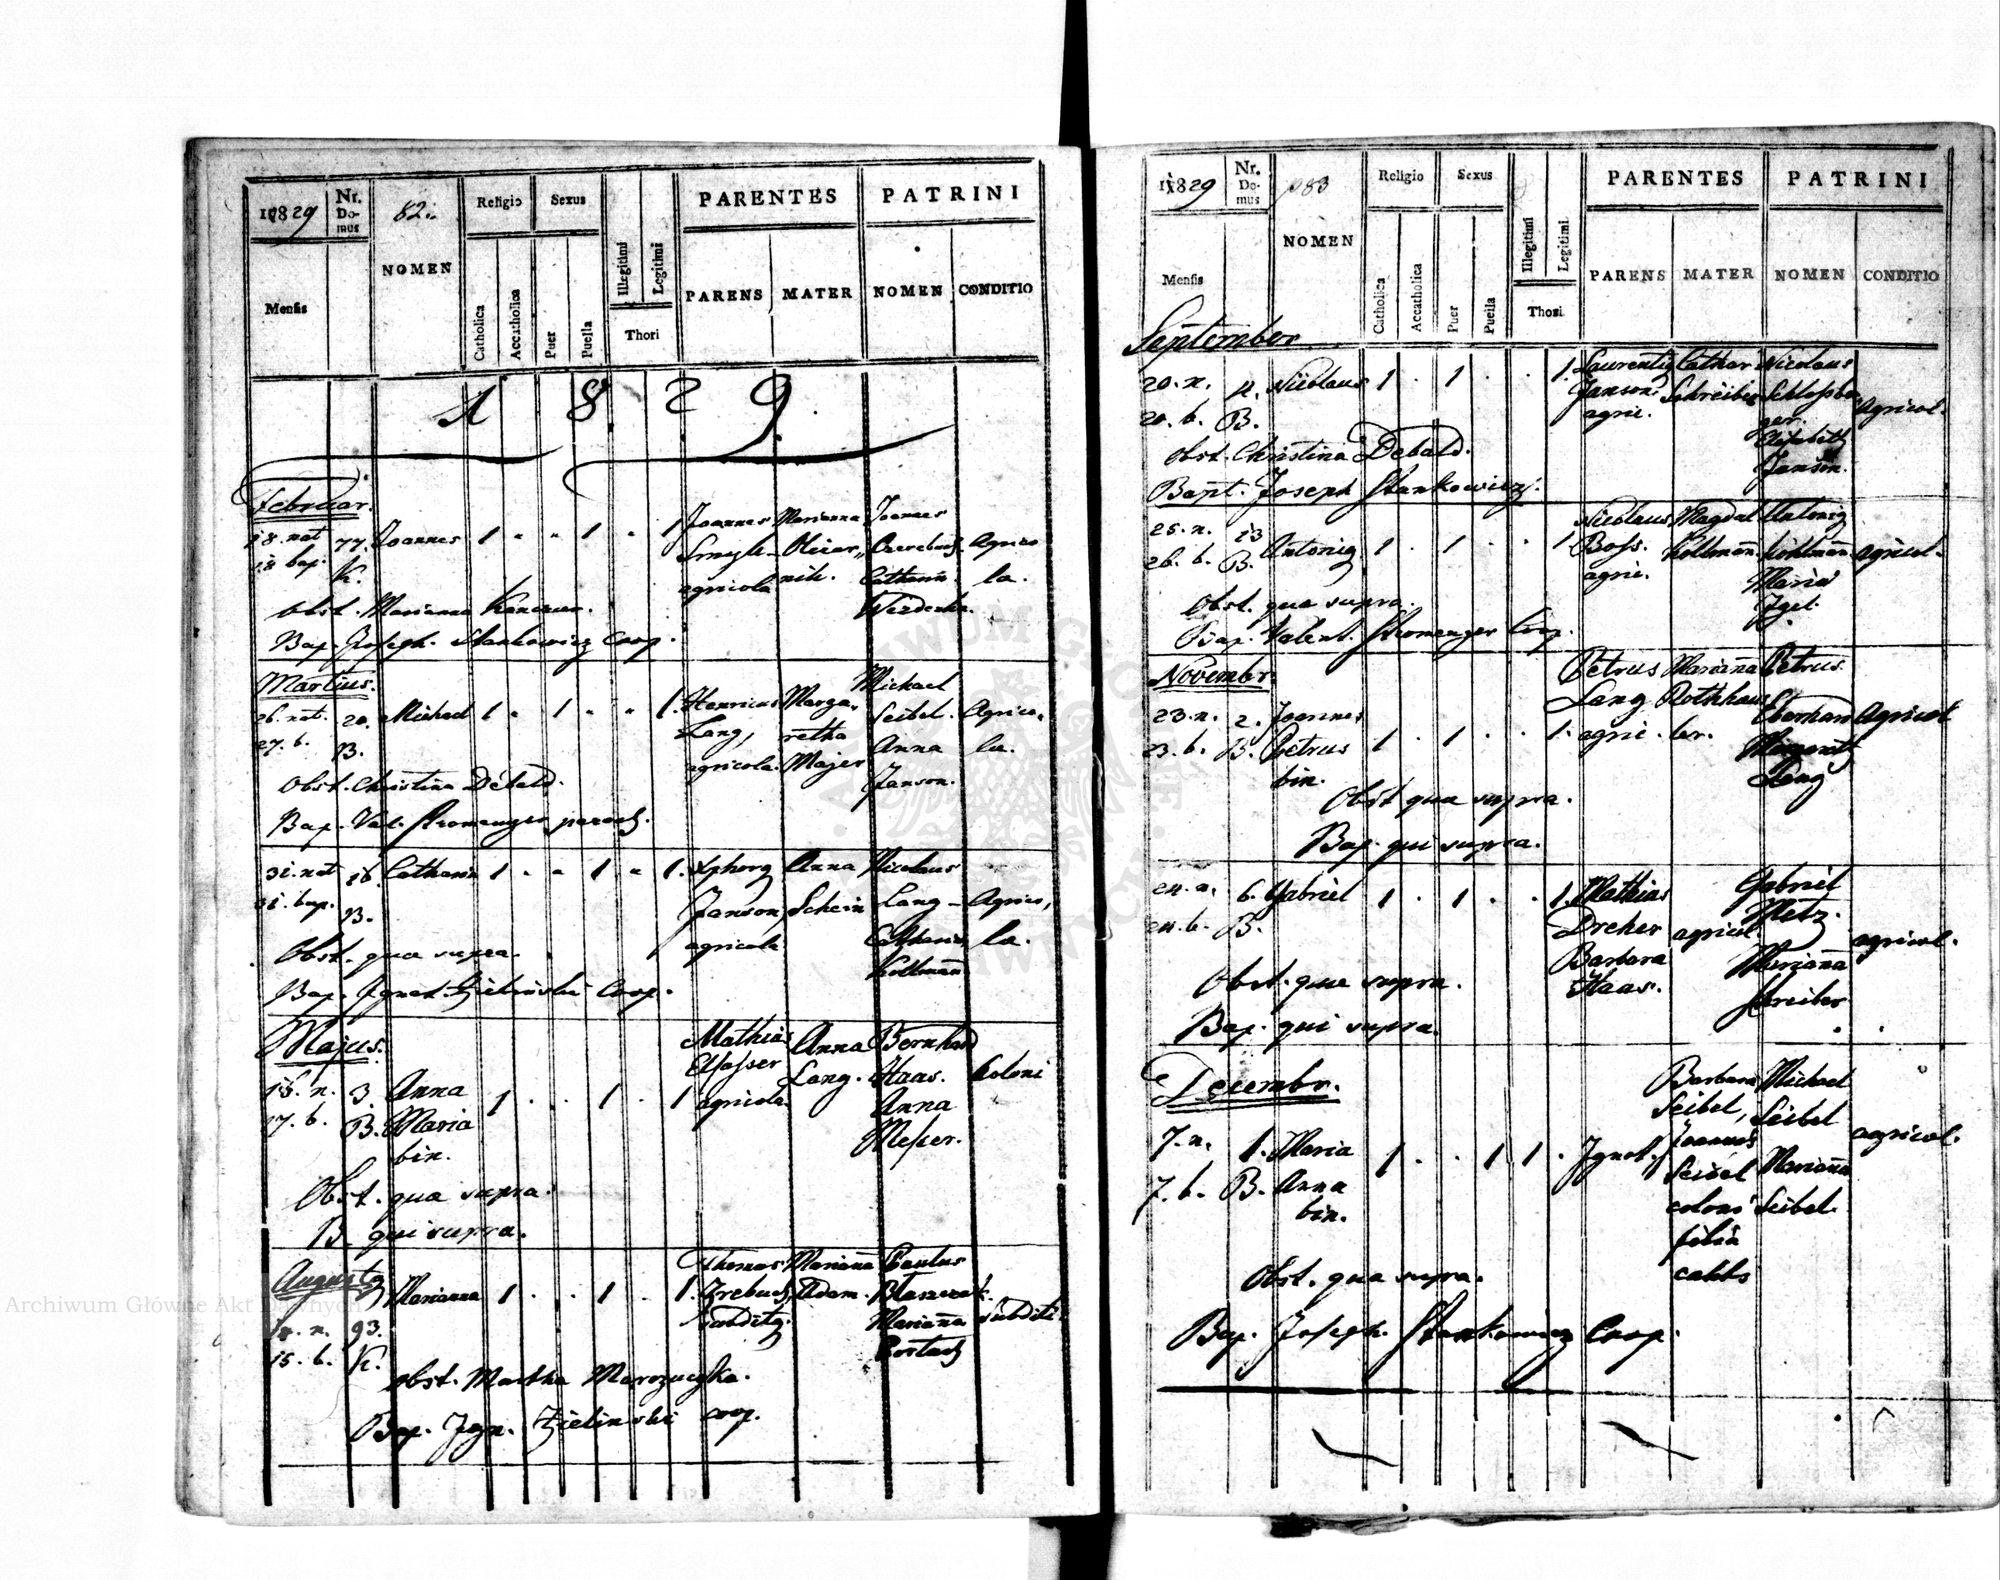 1829
Nr. Domus
82.
NOMEN
Religio
Sexus
PARENTES
PATRINI
Mensis
Catholica
Accatholica
Puer
Puella
Illegitimi
Legitimi
Thori
PARENS
MATER
NOMEN
CONDITIO
1 8 2 9.
Februar.
18. nat 77. Joannes 1 1 1. Joannes Marianna Joannes
18 bap. K. agricola Catharin. Agrico la.
Obst. Marianna
Bap. Joseph. Stankowicz Coop.
Martius.
26. nat. 20. Michael 1 1 1. Henricus Marga- Michael
27. b. B. Lang, retha Seibel. Agrico-
agricola. Majer Anna la.
Janson.
Obst. Christina Debald.
Bap. Val. Stromenger paroch.
31. nat 16 Catharin 1 1 1. Anna Nicolaus
31. bap. B. Janson, Schein Lang Agrico,
agricola Catharin la.
Kollmann
Obst. qua supra.
Bap. Ignat. Zielinski Coop.
Majus.
Mathias Anna Bernhard
15. n. 3. Anna 1 1 1 Elsasser Lang. Haas. Coloni
17. b. B. Maria agricola. Anna
bin. Messer.
Obst. qua supra.
B. qui supra.
Augusty
Thomas Marianna Paulus
Marianna 1 1 1. Adam.
14. n. 93. Marianna subditi.
15. b. K.
Obst. Martha
Bap. Ign. Zielinski coop.
1829
Nr. Domus
83
NOMEN
Religio
Sexus
PARENTES
PATRINI
Mensis
Catholica
Accatholica
Puer
Puella
Illegitimi
Legitimi.
Thori
PARENS
MATER
NOMEN
CONDITIO
September
20. n. Nicolaus 1 1 1. Laurentig Cathar Nicolaus
20. b. B. Janson. Schreiber Schlossber
agric. ger. Agricol.
Elisabeth
Janson.
Obst. Christina Debald.
Bapt. Joseph Stankowicz.
25. n. 13 Antonig 1 1 1 Nicolaus Magdal Antonig
26. b. B. Boss. Kollmann Kohlmann agricol.
agric. Maria
Igel.
Obst. qua supra.
Bap. Valent. Stromenger Coop.
Novembr.
Petrus Marianna Petrus
23. n. 2. Joannes Lang Rothhau Eberhard Agricol
23. b. B. Petrus 1 1 1. agric. ber. Margareth
bin. Lang
Obst qua supra.
Bap. qui supra.
24. n. 6. Gabriel 1 1 1. Mathias Gabriel
24. b. B. Dreher agricol Metz.
Barbara Marianna agricol.
Haas. Schreiber
Obst. qua supra.
Bap. qui supra.
Decembr.
Barbara Michael
Seibel, Seibel
7. n. 1. Maria 1 1 1. Ignot. Joannes agricol.
7. b. B. Anna Seibel Marianna
bin. coloni Seibel.
filia
Obst. qua supra.
Bap. Joseph. Stankowicz Coop.
Archiwum Główne Akt Dawnych